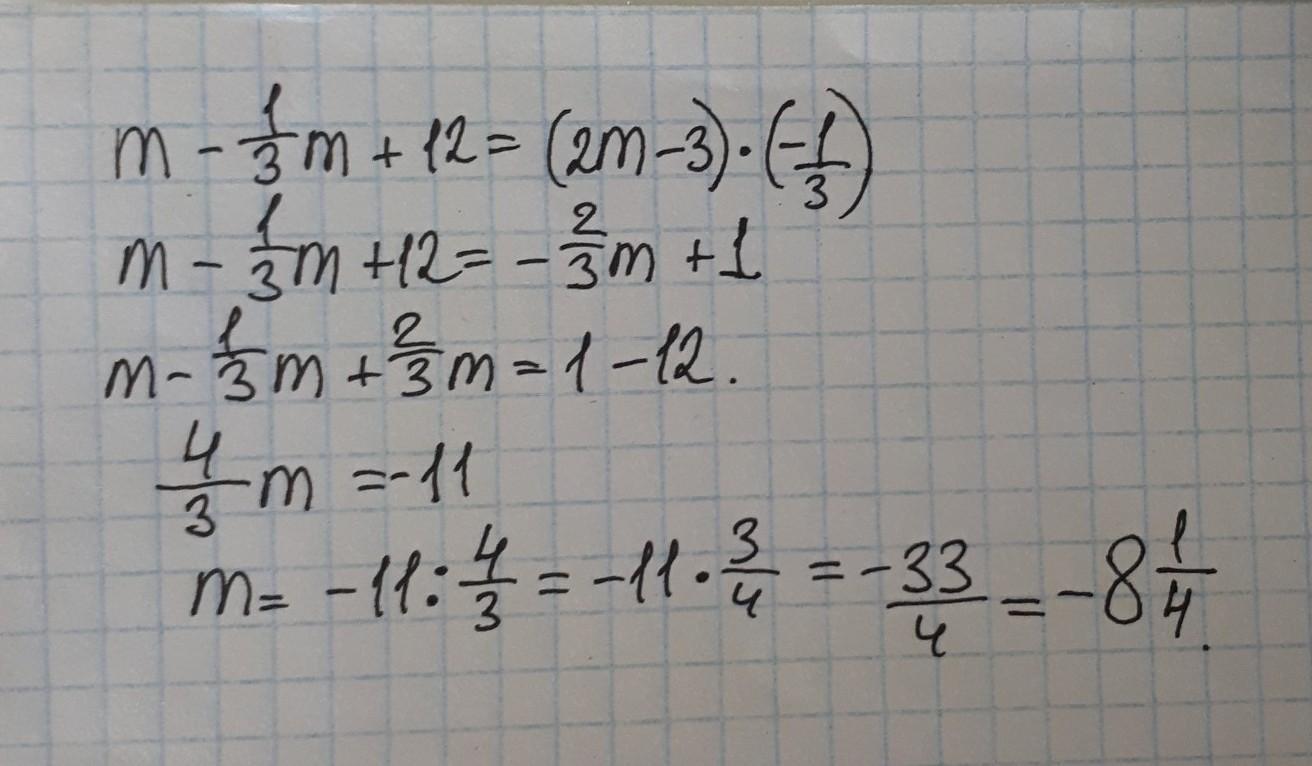 m - 1/3 m + 12 = (2m - 3) · (-1/3)
m - 1/3 m + 12 = - 2/3 m + 1
m - 1/3 m + 2/3 m = 1 - 12.
4/3 m = -11
m = -11 : 4/3 = -11 · 3/4 = -33/4 = -8 1/4.